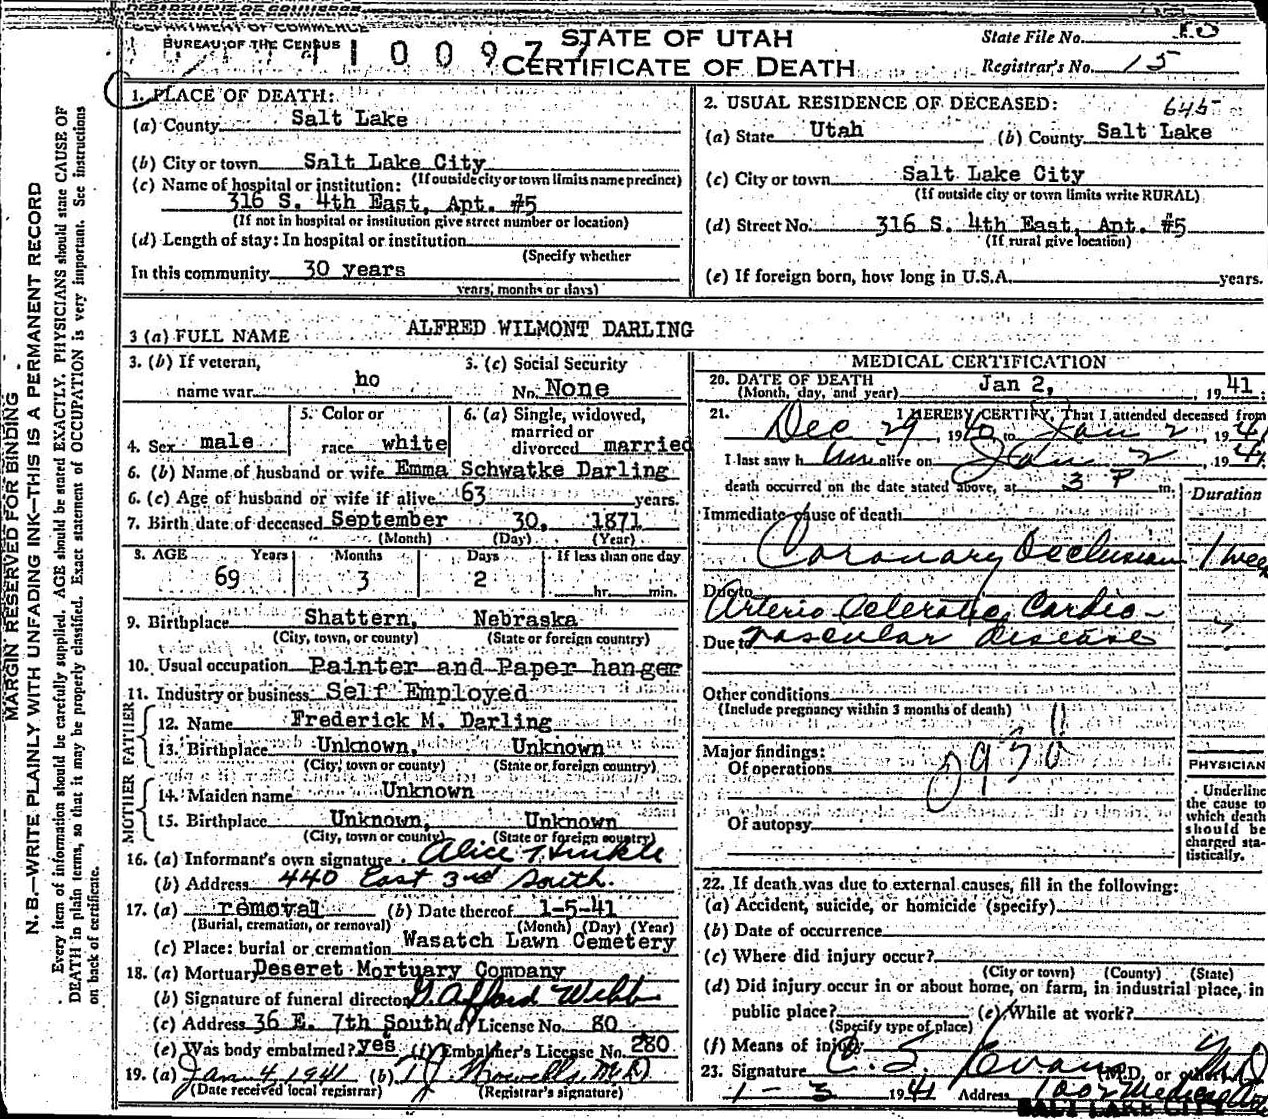 DEPARTMENT OF COMMERCE
BUREAU OF THE CENSUS
STATE OF UTAH
CERTIFICATE OF DEATH
State File No. 10
Registrar's No. 15
MARGIN RESERVED FOR BINDING
N. B.—WRITE PLAINLY WITH UNFADING INK—THIS IS A PERMANENT RECORD
Every item of information should be carefully supplied. AGE should be stated EXACTLY. PHYSICIANS should state CAUSE OF
DEATH in plain terms, so that it may be properly classified. Exact statement of OCCUPATION is very important. See instructions
on back of certificate.
1. PLACE OF DEATH:
(a) County Salt Lake
(b) City or town Salt Lake City
(If outside city or town limits name precinct)
(c) Name of hospital or institution:
316 S. 4th East, Apt. #5
(If not in hospital or institution give street number or location)
(d) Length of stay: In hospital or institution
(Specify whether
In this community 30 years
years, months or days)
2. USUAL RESIDENCE OF DECEASED: 645
(a) State Utah (b) County Salt Lake
(c) City or town Salt Lake City
(If outside city or town limits write RURAL)
(d) Street No. 316 S. 4th East, Apt. #5
(If rural give location)
(e) If foreign born, how long in U.S.A. years.
3 (a) FULL NAME ALFRED WILMONT DARLING
3. (b) If veteran,
name war ho
3. (c) Social Security
No. None
4. Sex male
5. Color or
race white
6. (a) Single, widowed,
married or
divorced married
6. (b) Name of husband or wife Emma Schwatke Darling
6. (c) Age of husband or wife if alive 63 years.
7. Birth date of deceased September 30, 1871
(Month) (Day) (Year)
8. AGE Years Months Days If less than one day
69 3 2 hr. min.
9. Birthplace Shattern, Nebraska
(City, town, or county) (State or foreign country)
10. Usual occupation Painter and Paper hanger
11. Industry or business Self Employed
FATHER
12. Name Frederick M. Darling
13. Birthplace Unknown, Unknown
(City, town or county) (State or foreign country)
MOTHER
14. Maiden name Unknown
15. Birthplace Unknown, Unknown
(City, town or county) (State or foreign country)
16. (a) Informant's own signature Alice Hinkle
(b) Address 440 East 3rd South.
17. (a) removal (b) Date thereof 1-5-41
(Burial, cremation, or removal) (Month) (Day) (Year)
(c) Place: burial or cremation Wasatch Lawn Cemetery
18. (a) Mortuary Deseret Mortuary Company
(b) Signature of funeral director Webb
(c) Address 36 E. 7th South (d) License No. 80
(e) Was body embalmed? yes (f) Embalmer's License No. 280
19. (a) Jan 4 1941 (b) M.D.
(Date received local registrar) (Registrar's signature)
MEDICAL CERTIFICATION
20. DATE OF DEATH
(Month, day, and year) Jan 2, 1941:
21. I HEREBY CERTIFY, That I attended deceased from
Dec 29, 1940 to Jan 2, 1941
I last saw him alive on Jan 2, 1941
death occurred on the date stated above, at 3 P m.
Duration
Immediate cause of death
Coronary Occlusion 1 week
Due to Arterio Sclerotic Cardio-
Due to vascular disease ?
Other conditions
(Include pregnancy within 3 months of death)
Major findings:
Of operations
Of autopsy
PHYSICIAN
Underline
the cause to
which death
should be
charged sta-
tistically.
22. If death was due to external causes, fill in the following:
(a) Accident, suicide, or homicide (specify)
(b) Date of occurrence
(c) Where did injury occur?
(City or town) (County) (State)
(d) Did injury occur in or about home, on farm, in industrial place, in
public place? (e) While at work?
(Specify type of place)
(f) Means of injury
23. Signature C. S. Evans MD (M.D. or other)
1-3 1941 Address 1002 Medical
SALT LAKE CITY